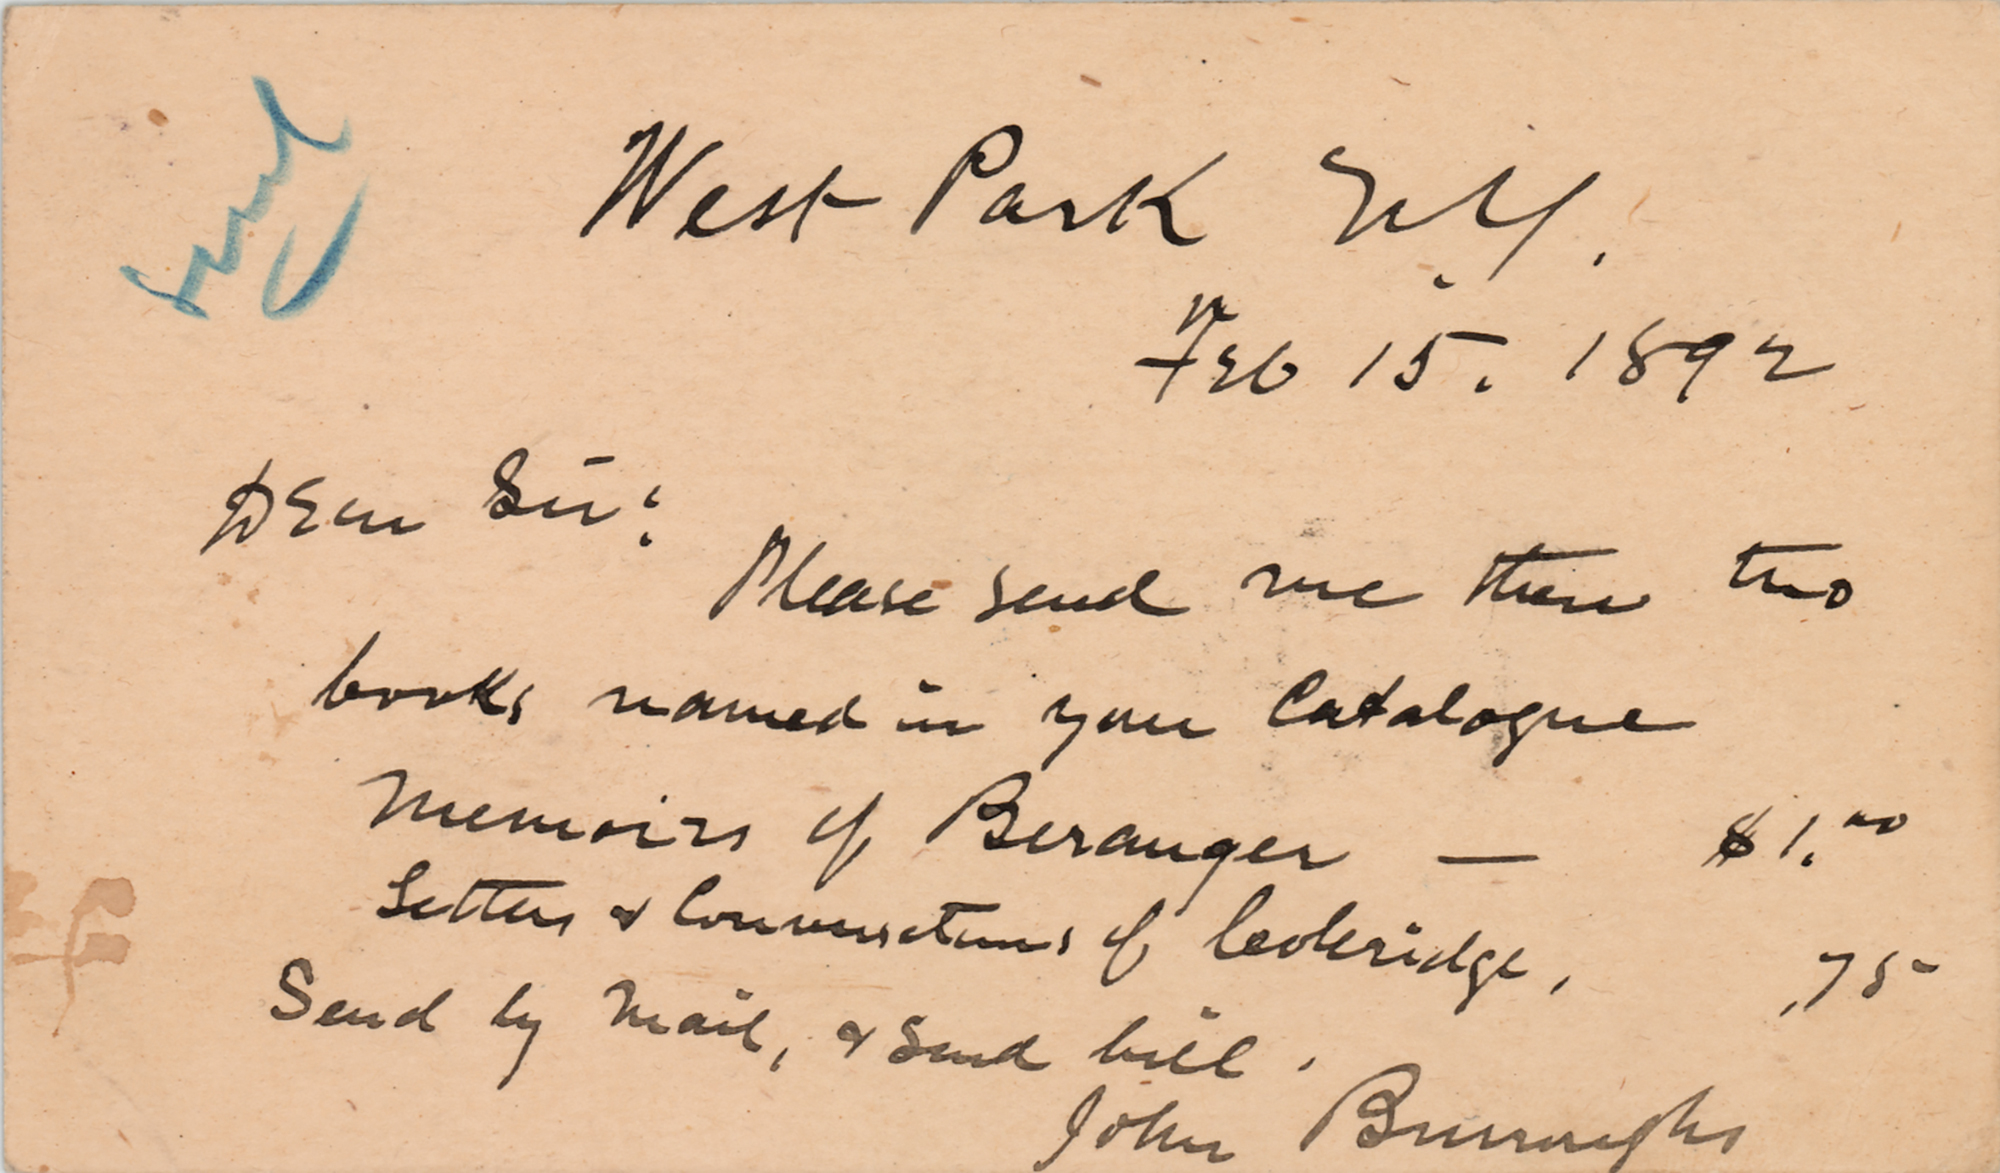 West Park N.Y.
Feb 15. 1892
Dear Sir:
Please send me these two
books named in your Catalogue
Memoirs of Beranger — $1.00
Letters & Conversations of Coleridge, .75
Send by Mail, & send bill.
John Burroughs